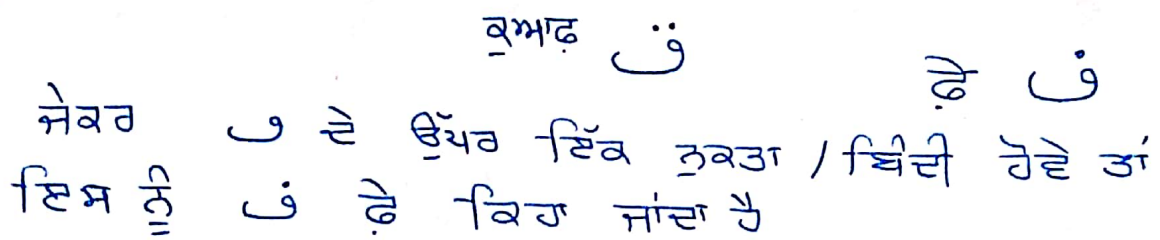 ਕੁਆਫ਼ ق
ਫ਼ੇ ف
ਜੇਕਰ ٯ ਦੇ ਉੱਪਰ ਇੱਕ ਨੁਕਤਾ / ਬਿੰਦੀ ਹੋਵੇ ਤਾਂ
ਇਸ ਨੂੰ ف ਫ਼ੇ ਕਿਹਾ ਜਾਂਦਾ ਹੈ